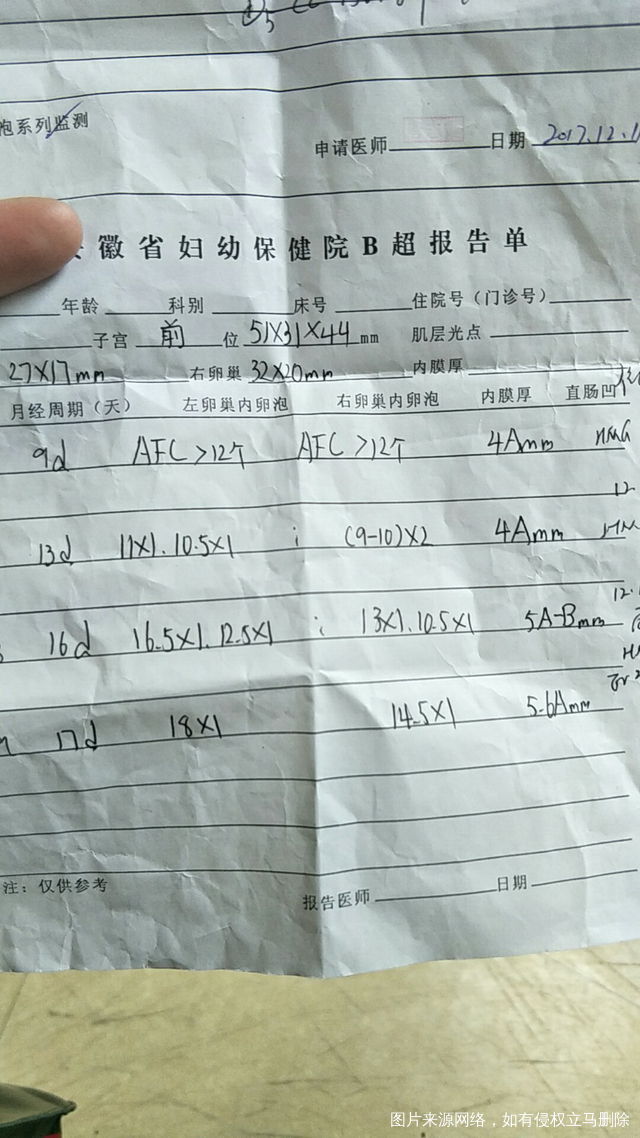 泡系列监测
申请医师 日期 2017.12.1
徽省妇幼保健院B超报告单
年龄 科别 床号 住院号（门诊号）
子宫 前 位 51X31X44 mm 肌层光点
27X17mm 右卵巢 32X20mm 内膜厚
月经周期（天） 左卵巢内卵泡 右卵巢内卵泡 内膜厚 直肠凹
9d AFC>12个 AFC>12个 4Amm HMG
12
13d 11X1.10.5X1 ; (9-10)X2 4Amm HM
12.
16d 16.5X1.12.5X1 ; 13X1.10.5X1 5A-Bmm
17d 18X1 14.5X1 5.6Amm
注：仅供参考
报告医师 日期
图片来源网络，如有侵权立马删除